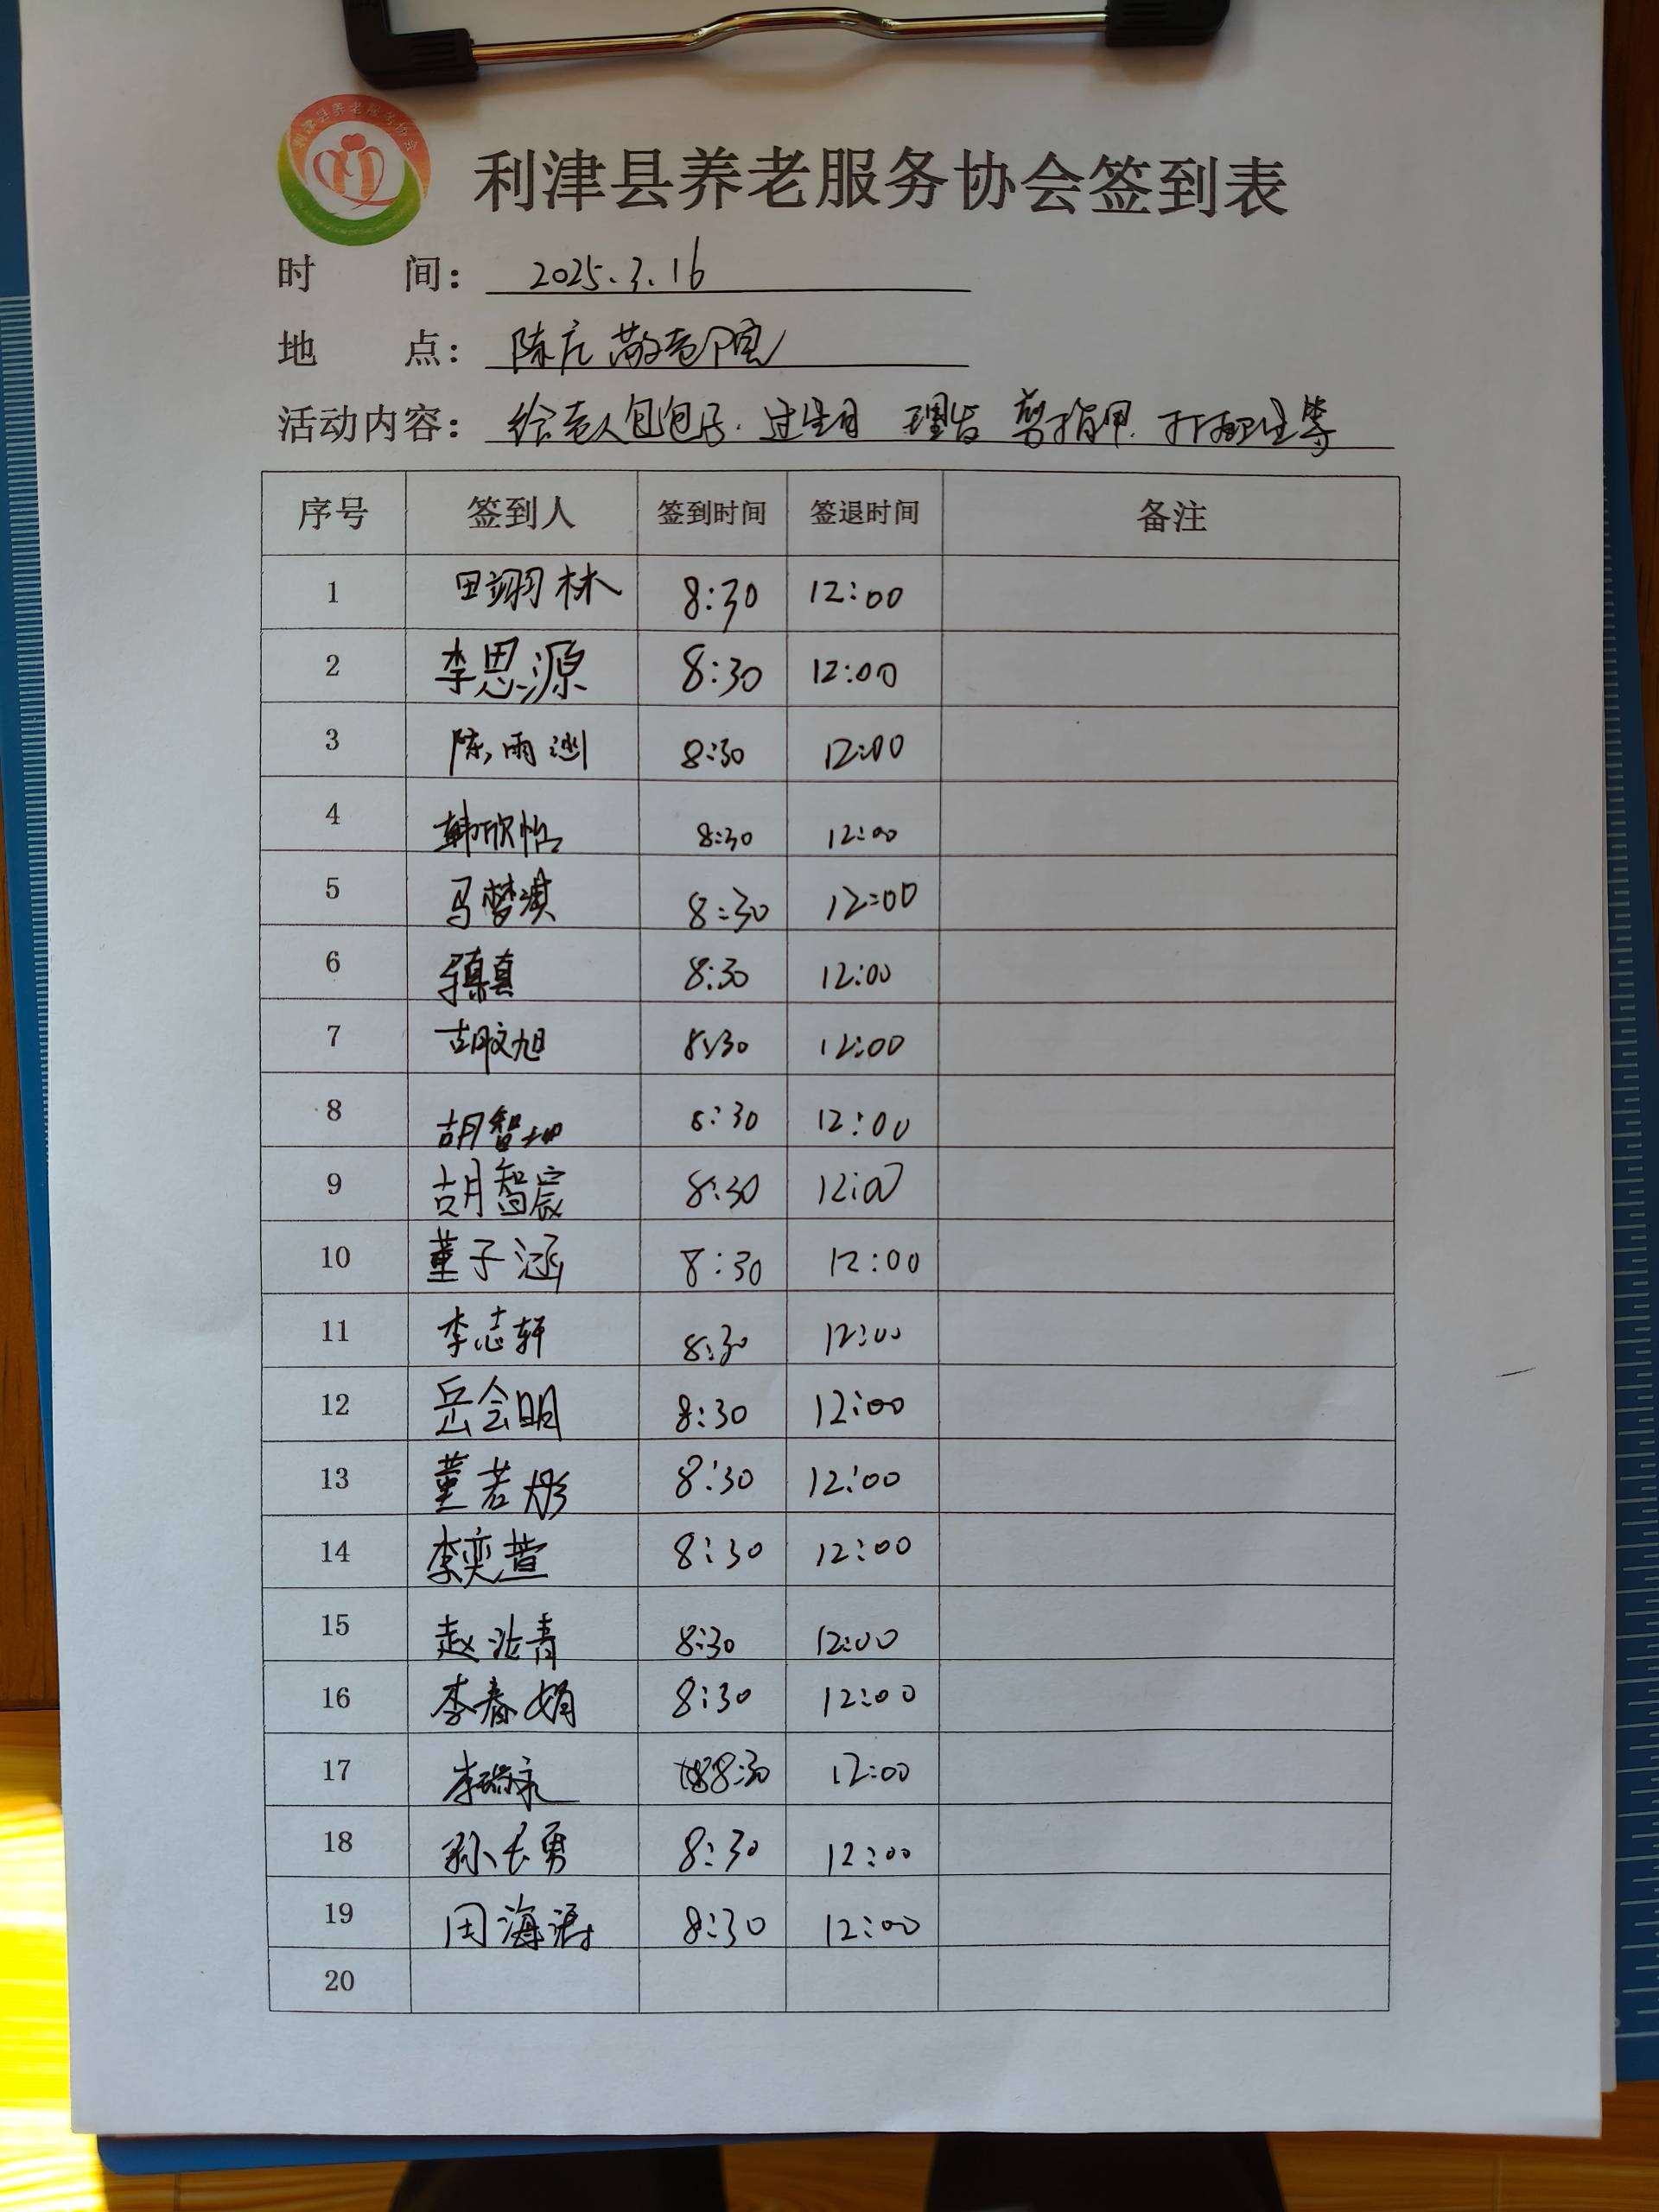 利津县养老服务协会
利津县养老服务协会签到表
时 间： 2025.3.16
地 点： 陈庄敬老院
活动内容： 给老人包包子.过生日 理发 剪指甲.打扫卫生等
序号 签到人 签到时间 签退时间 备注
1 田翊林 8:30 12:00
2 李思源 8:30 12:00
3 陈雨 8:30 12:00
4 韩欣怡 8:30 12:00
5 马梦淇 8:30 12:00
6 8:30 12:00
7 胡文旭 8:30 12:00
8 胡智坤 8:30 12:00
9 胡智宸 8:30 12:00
10 董子涵 8:30 12:00
11 李志轩 8:30 12:00
12 岳会明 8:30 12:00
13 董若彤 8:30 12:00
14 李奕萱 8:30 12:00
15 赵法青 8:30 12:00
16 李春娟 8:30 12:00
17 李瑞永 8:30 12:00
18 孙长勇 8:30 12:00
19 田海涛 8:30 12:00
20